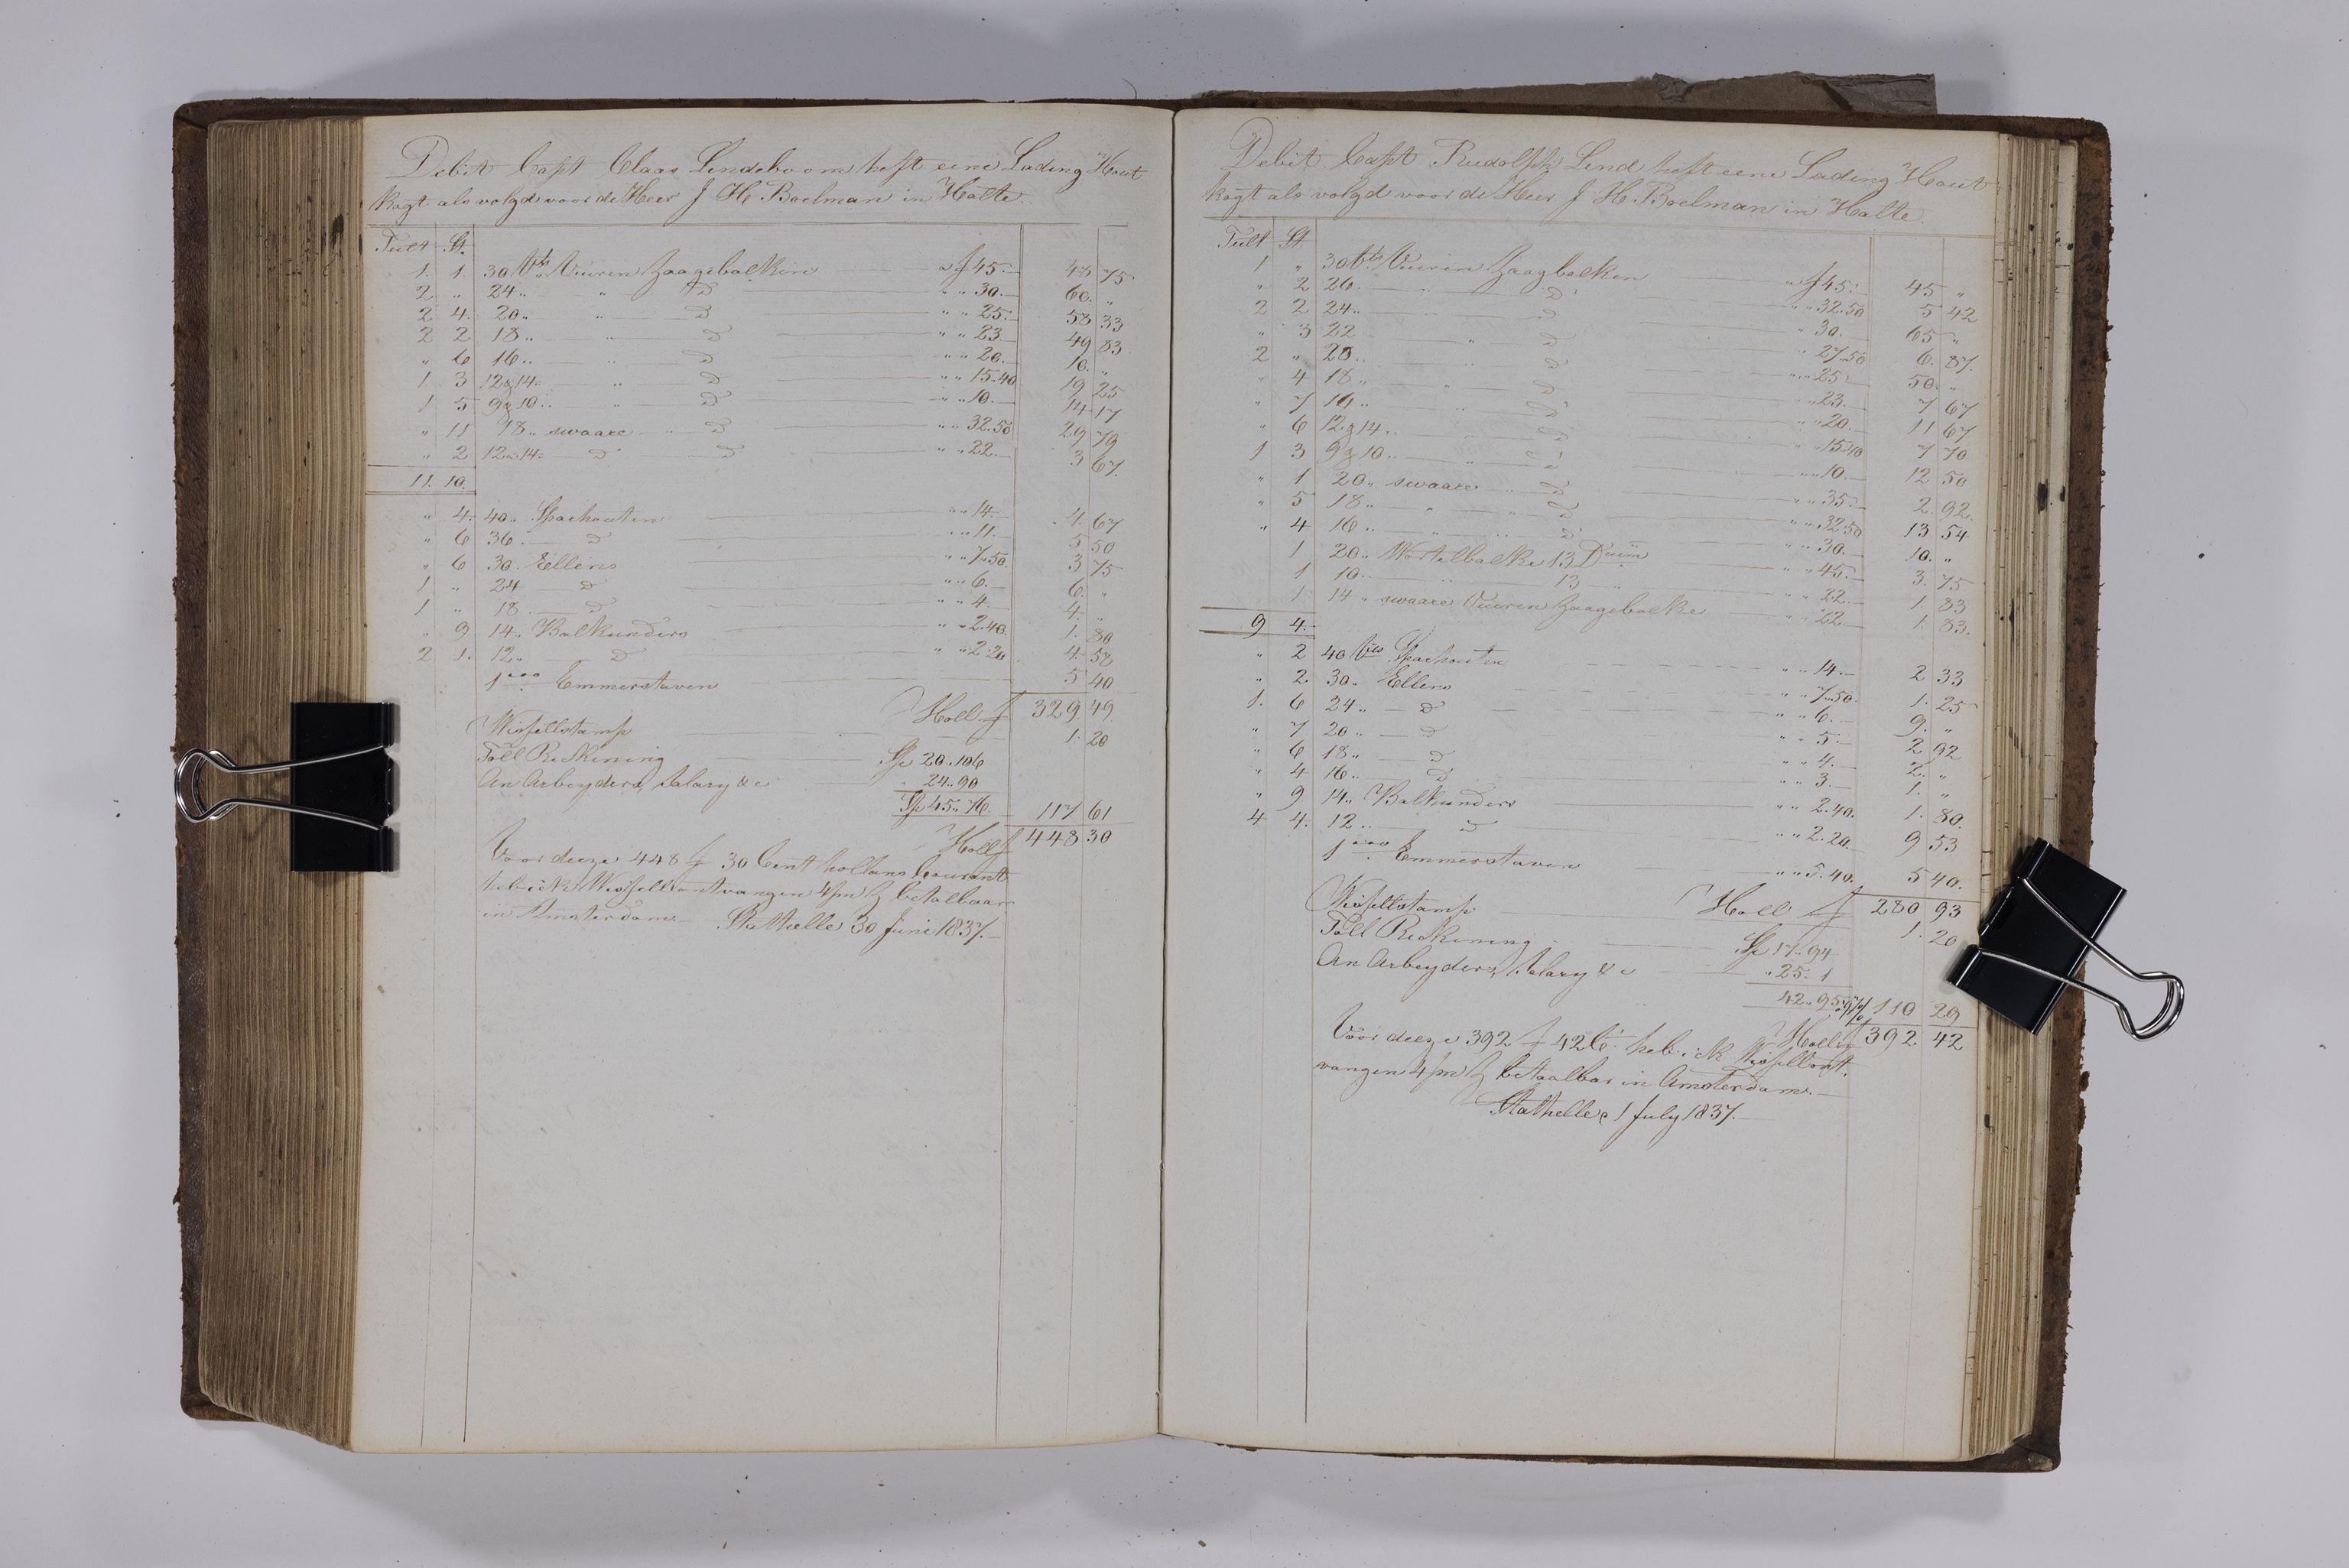 Debit Capt Claas Lindeboom heft eene Lading Hout
kogt als volgd voor de Heer J H. Boelman in Halte.
Tult St.
1. 1 30 Vts Vuuren Zaagebalken a f 45.— 48 75.
2 „ 24 „ „ D „ „ 30.— 60. „
2 4. 20 „ „ D „ „ 25.— 58 33
2 2 18 „ „ D „ „ 23.— 49 83
„ 6 16 „ „ D „ „ 20.— 10. „
1 3 12 à 14 „ „ D „ „ 15.40 19 25
1 5 9 à 10 „ „ D „ „ 10.— 14 17
„ 11 18 „ swaare „ D „ „ 32.50 29 79
„ 2 12 à 14 „ D D „ „ 22.— 3 67.
11. 10.
„ 4. 40 „ Sparhouten „ „ 14.— 4. 67
„ 6 36. D „ „ 11.— 5 50
„ 6 30. Ellens „ „ 7.50. 3 75
1 „ 24 D „ „ 6.— 6. „
1 „ 18 D „ „ 4.— 4. „
„ 9 14 „ Balkunders „ „ 2.40. 1. 80
2 1. 12 „ D „ „ 2.20 4. 58
1 ooo Emmerstaven 5 40
Holl f 329 49
Wissellstamp 1. 20
Toll Reckening Sp 20.106
An Arbeyders, Salary & c 24.90
Sp 45.76. 117 61
Holl f 448 30
Voor deeze 448 f 30 Cent hollans Courant
heb ick Wissell ontvangen 4 m betalbaar
in Amsterdam. Stathelle 30 Juni 1837.
Debit Capt Rudolph Lind heft eene Lading Hout
kogt als volgd voor de Heer J H. Boelman in Halte.
Tult St.
1 „ 30 Vts Vuuren Zaagbalken „ f 45.— 45 „
„ 2 26. „ D „ „ 32.50 5 42
2 2 24 „ D „ 30. 65 „
„ 3 22 „ D „ 27.50 6. 87.
2 „ 20 „ „ D „ „ 25.— 50. „
„ 4 18 „ „ D „ 23.— 7 67
„ 7 16 „ „ D „ „ 20.— 11 67
„ 6 12 à 14 „ „ D „ 15.40 7 70
1 3 9 à 10 „ „ D „ „ 10.— 12 50
„ 1 20 „ swaare „ D „ „ 35.— 2. 92.
„ 5 18 „ „ „ D „ „ 32.50 13 54
„ 4 16 „ „ „ D „ „ 30.— 10. „
1 20 „ Wortelbalke 13 Duim „ „ 45.— 3. 75
1 10 13 „ „ „ 22.— 1. 83
1 14 „ swaare Vuuren Zaagebalke „ „ 22.— 1. 83.
9 4.
„ 2 40 Vts Sparhouten „ „ 14.— 2 33
„ 2 30 „ Ellens „ „ 7.50. 1. 25
1. 6 24 „ D „ „ 6.— 9. „
„ 7 20 „ D „ „ 5.— 2 92
„ 6 18 „ D „ „ 4.— 2. „
„ 4 16 „ D „ „ 3.— 1. „
„ 9 14 „ Balkunders „ „ 2.40. 1. 80.
4 4. 12 „ D „ „ 2.20. 9 53
1 ooo Emmerstaven „ „ 5.40. 5 40.
Holl f 280 93
Wissellstamp 1. 20
Toll Reckening Sp 17.94
An Arbeyders, Salary & c „ 25. 1
42.95 110 29
Holl f 392 42
Voor deeze 392 f 42 C. heb ick Wissell ont,
vangen 4 m betaalbar in Amsterdam.—
Stathelle 1 July 1837.